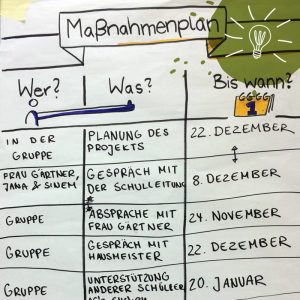 Maßnahmenplan
Wer? Was? Bis wann?
1
IN DER GRUPPE PLANUNG DES PROJEKTS 22. DEZEMBER
FRAU GÄRTNER, JANA & SINEM GESPRÄCH MIT DER SCHULLEITUNG 8. DEZEMBER
GRUPPE ABSPRACHE MIT FRAU GÄRTNER 24. NOVEMBER
GRUPPE GESPRÄCH MIT HAUSMEISTER 22. DEZEMBER
GRUPPE UNTERSTÜTZUNG ANDERER SCHÜLER 20. JANUAR